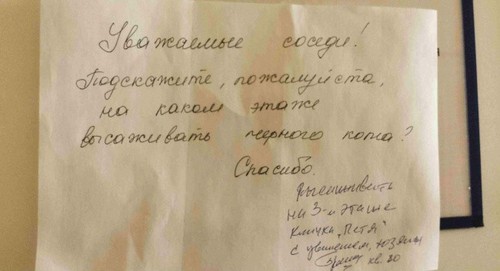 Уважаемые соседи!
Подскажите, пожалуйста,
на каком этаже
высаживать черного кота?
Спасибо.
Высаживать
на 3-м этаже
кличка "Петя"
с уважением, хозяева
кв. 20